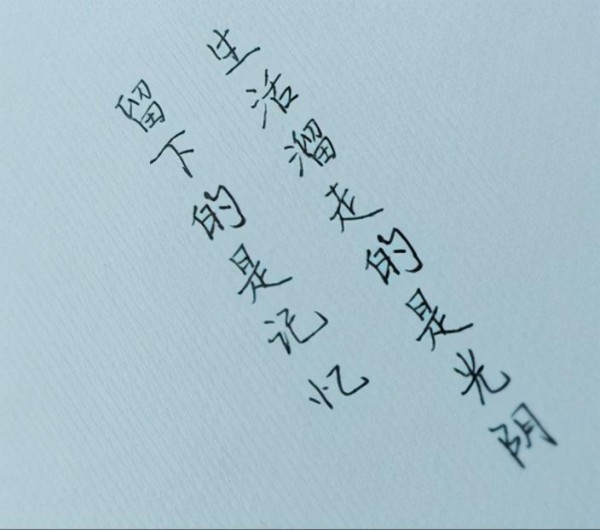 生活溜走的是光阴
留下的是记忆